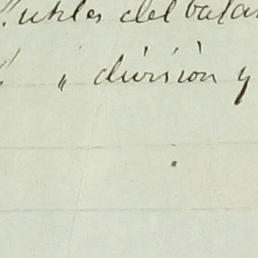 utiles del batal
" división y